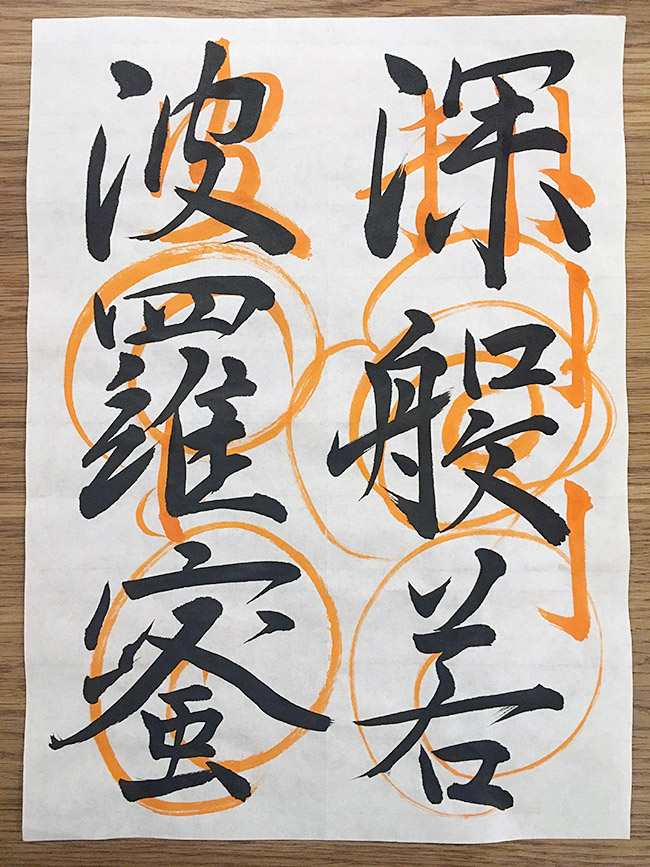 深般若
波羅蜜